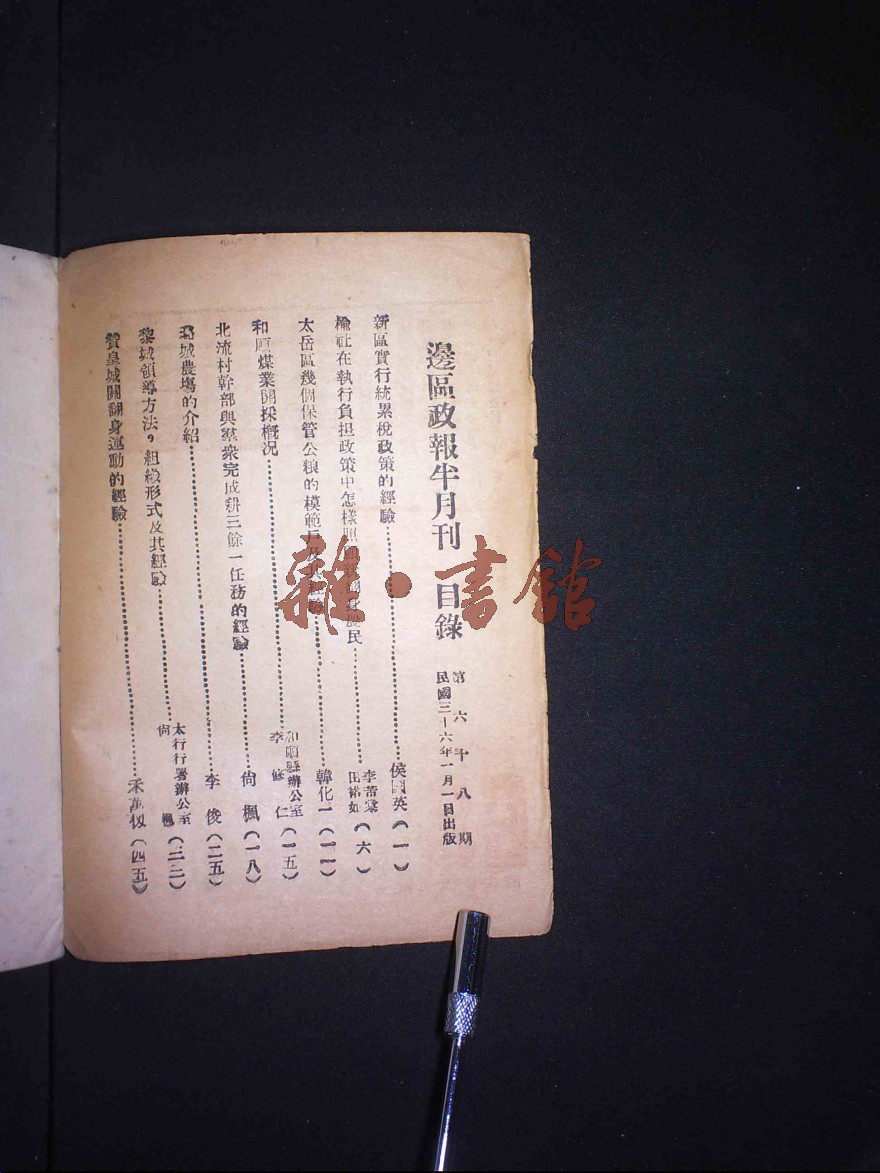 邊區政報半月刊 目錄
第六十八期
民國三十六年一月一日出版
新區實行統累稅政策的經驗……侯國英(一)
榆社在執行負担政策中怎樣照顧 農民……李 田裕如(六)
太岳區幾個保管公粮的模範 及其經驗……韓化一(一一)
和順煤業開採槪況……和順縣辦公室 李修仁(一五)
北流村幹部與羣衆完成耕三餘一任務的經驗……尙楓(一八)
潞城農塲的介紹……李俊(二五)
黎城領導方法,組織形式及其經驗……太行行署辦公室 尙楓(三二)
贊皇城關翻身運動的經驗……禾萬 (四五)
雜·書館